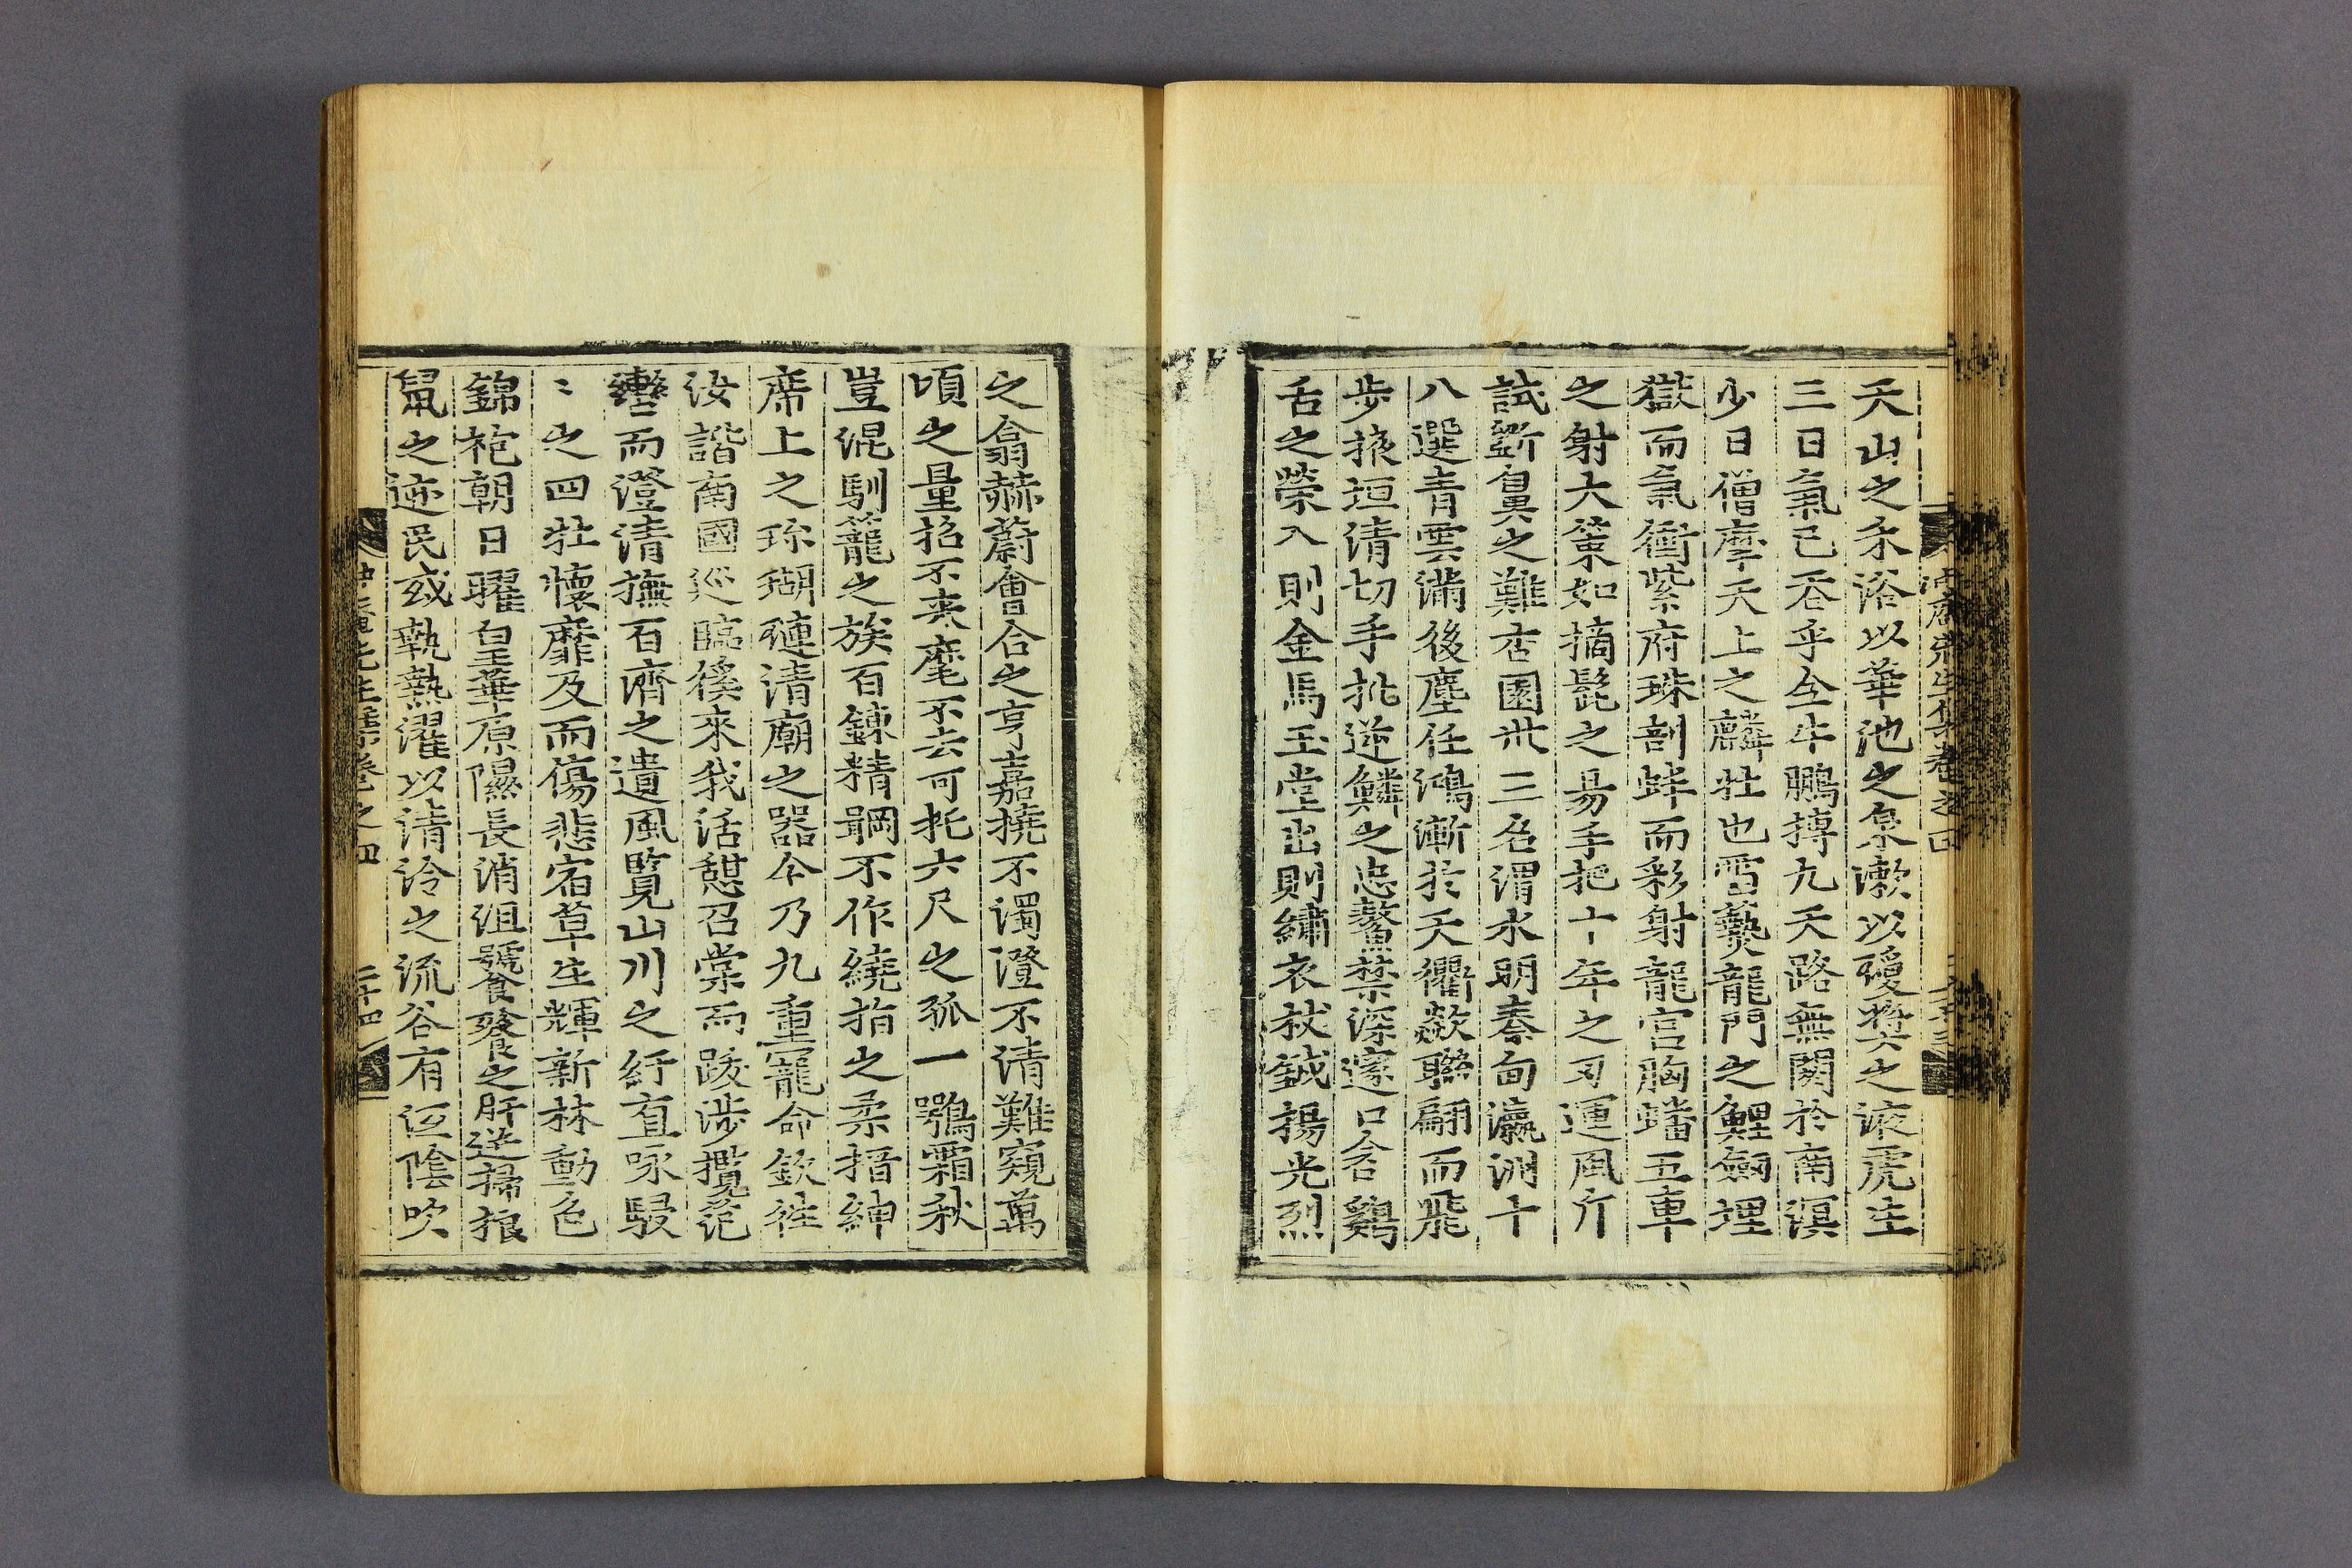 天山之禾浴以華池之泉漱以瓊漿之液虎生
三日氣已吞乎全牛鵬搏九天路無閡於南溟
少日僧摩天上之麟壯也雷藝龍門之鯉劒埋
獄而氣衝紫府珠剖蚌而彩射龍宮胸蟠五車
之射大策如摘髭之易手把十年之刃運風斤
試斲鼻之難杏園卅三名渭水明秦甸瀛洲十
八選青雲滿後塵任鴻漸於天衢歘聯翩而飛
步掖垣倩切手批逆鱗之忠鰲禁深邃口含鷄
舌之榮入則金馬玉堂出則繡衣杖鉞揚光烈
冲庵先生集卷之四
之翕赫蔚會合之亨嘉撓不濁澄不清難窺萬
頃之量招不來麾不去可托六尺之孤一鶚霜秋
豈混馴籠之族百鍊精鋼不作繞指之柔搢紳
席上之珎瑚璉清廟之器今乃九重寵命欽徃
汝諧南國廵臨徯來我活憇召棠而跋涉攬范
轡而澄淸撫百濟之遺風覽山川之紆直咏駸
〻之四牡懷靡及而傷悲宿草生輝新林動色
錦袍朝日曜皇華原隰長消沮饕餮之肝逆掃狼
鼠之迹民或執熱濯以清泠之流谷有恒陰吹
冲庵先生集卷之四 二十四